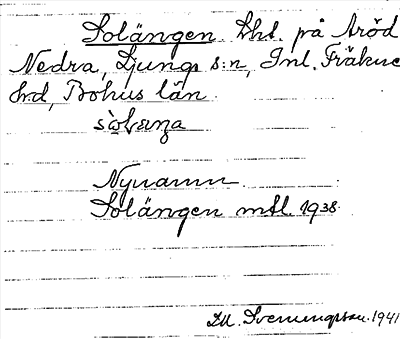 Solängen. Lht. på Aröd
Nedra, Ljungs s:n, Inl. Fräkne
hrd, Bohus län.
Nynamn
Solängen mtl. 1938.
Svenungsson. 1941